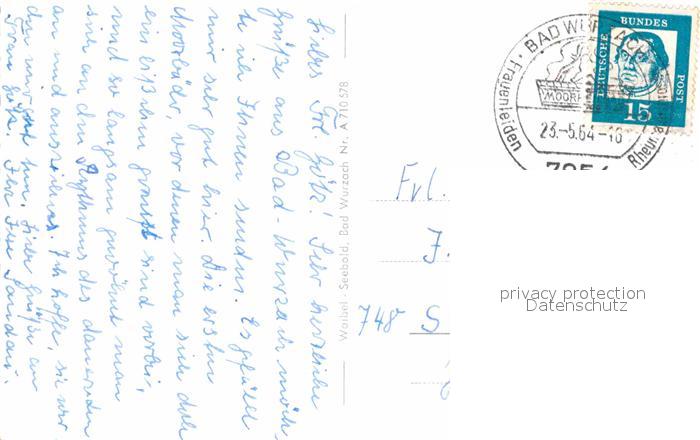 Liebes Frl. Götz! Sehr herzliche
Grüße aus Bad-Wurzach möch-
te ich Ihnen senden. Es gefällt
mir sehr gut hier. Die ersten
Moorbäder, vor denen man sich doch
ein bißchen graust sind vorbei,
und so langsam gewöhnt man
sich an den Rhythmus des dauernden
an und ausziehens. Ich hoffe, sie
den mir gut tun. Liebe Grüße an
Frau Götz. Ihre
Waibel - Seebold, Bad Wurzach Nr. A 710 578
BAD WURZACH
Frauenleiden
MOOR
23.-5.64-18
Rheuma
DEUTSCHE
BUNDES
POST
15
Frl.
J.
748 S
privacy protection
Datenschutz